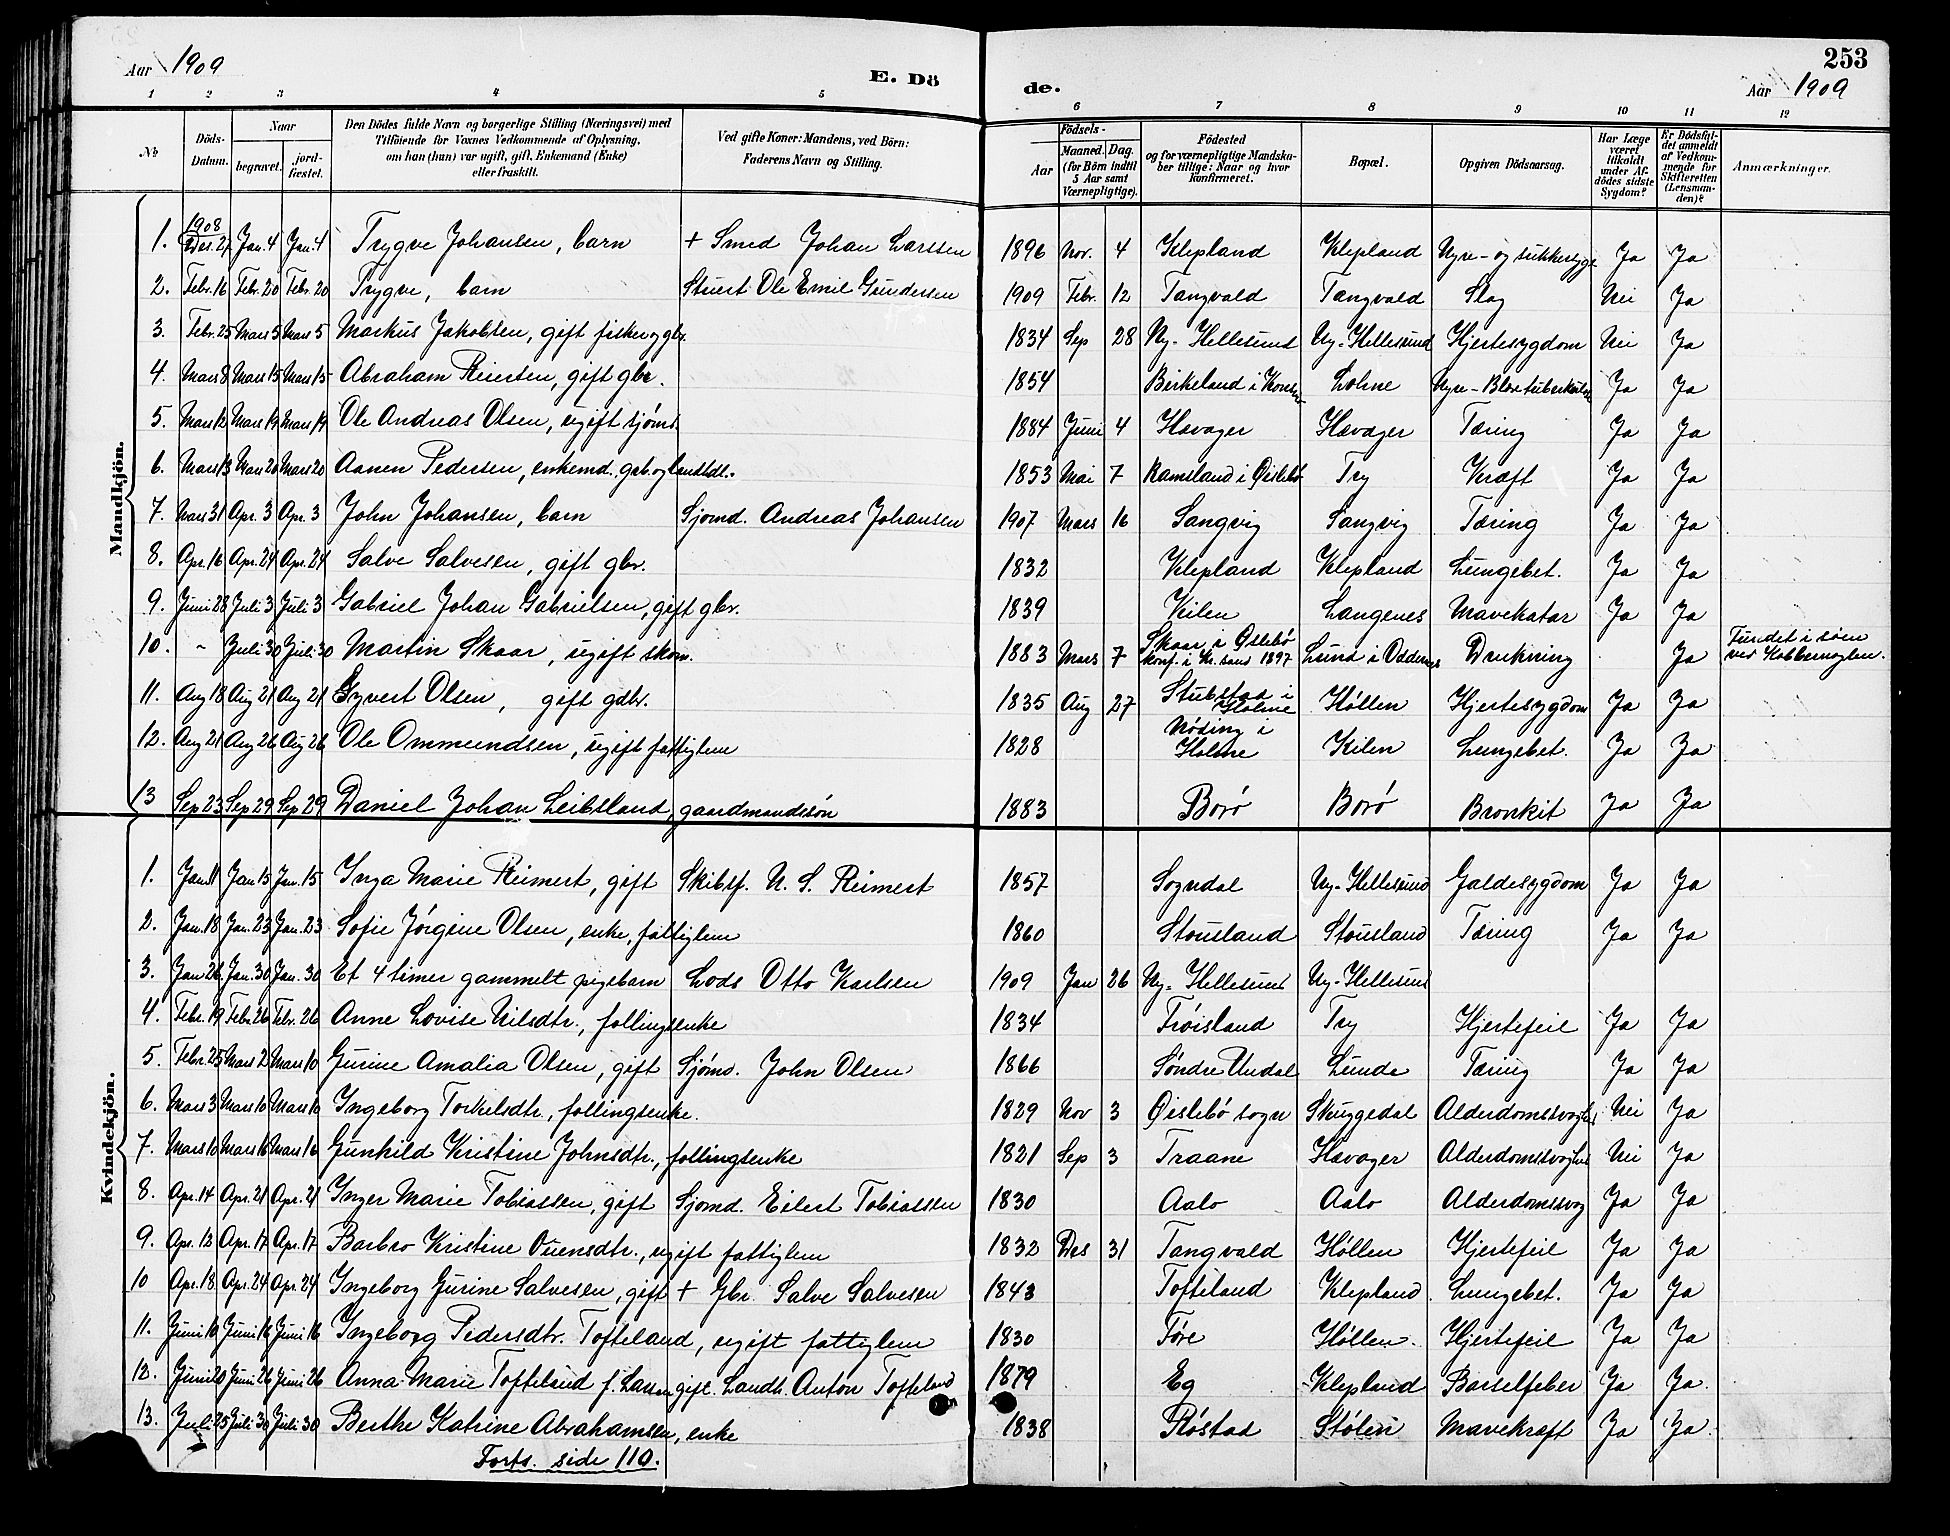 253
Aar 1909
E. Dö
de.
Aar 1909
1 2 3 4 5 6 7 8 9 10 11 12
No Döds-Datum. Naar begravet. jord-fæstet. Den Dödes fulde Navn og borgerlige Stilling (Næringsvei) med Tilföiende for Voxnes Vedkommende af Oplysning, om han (hun) var ugift, gift, Enkemand (Enke) eller fraskilt. Ved gifte Koner: Mandens, ved Börn: Faderens Navn og Stilling. Födsels- Aar Maaned. Dag. (for Börn indtil 5 Aar samt Værnepligtige). Födested og for værnepligtige Mandskaber tillige: Naar og hvor konfirmeret. Bopæl. Opgiven Dödsaarsag. Har Læge været tilkaldt under Afdödes sidste Sygdom? Er Dödsfaldet anmeldt af Vedkommende for Skifteretten (Lensmanden)? Anmærkninger.
Mandkjön.
1. 1908 Des. 27 Jan. 4 Jan. 4 Trygve Johansen, barn + Smed Johan Larssen 1896 Nov. 4 Klepland Klepland Nyre- og sukkersyge Ja Ja
2. Febr. 16 Febr. 20 Febr. 20 Trygve, barn Stuert Ole Emil Gundersen 1909 Febr. 12 Tangvald Tangvald Slag Nei Ja
3. Febr. 25 Mars 5 Mars 5 Markus Jakobsen, gift fisker og gbr. 1834 Sep 28 Ny-Hellesund Ny-Hellesund Hjertesygdom Nei Ja
4. Mars 8 Mars 15 Mars 15 Abraham Reiersen, gift gbr. 1854 Birkeland i Lohne Nyre- Ja Ja
5. Mars 12 Mars 19 Mars 19 Ole Andreas Olsen, ugift sjömd. 1884 Juni 4 Havager Havager Tæring Ja Ja
6. Mars 13 Mars 20 Mars 20 Aanen Pedersen, enkemd. gbr. og landhdl. 1853 Mai 7 Ramsland i Øislebö Try Kræft Ja Ja
7. Mars 31 Apr. 3 Apr. 3 John Johansen, barn Sjömd. Andreas Johansen 1907 Mars 16 Langvig Langvig Tæring Ja Ja
8. Apr. 16 Apr. 24 Apr. 24 Salve Salvesen, gift gbr. 1832 Klepland Klepland Lungebet. Ja Ja
9. Juni 28 Juli 3 Juli 3 Gabriel Johan Gabrielsen, gift gbr. 1839 Kilen Langenes Mavekatar Ja Ja
10. - Juli 30 Juli 30 Martin Skaar, ugift skom. 1883 Mars 7 Skaar i Øslebö konf. i Kr.sand 1897 Lund i Oddernes Drukning Ja Fundet i söen ved Kobbernaglen.
11. Aug 18 Aug 21 Aug 21 Syvert Olsen, gift gdbr. 1835 Aug 27 Stubstad i Holme Höllen Hjertesygdom Ja Ja
12. Aug 21 Aug 26 Aug 26 Ole Ommundsen, ugift fattiglem 1828 Nöding i Holme Kilen Lungebet. Ja Ja
13 Sep 23 Sep 29 Sep 29 Daniel Johan Leibsland, gaardmandssön 1883 Borö Borö Bronkit Ja Ja
Kvindekjön.
1. Jan. 11 Jan 15 Jan. 15 Inga Marie Reimert, gift Skibsf. N. S. Reimert 1857 Sogndal Ny-Hellesund Galdesygdom Ja Ja
2. Jan. 18 Jan. 23 Jan. 23 Sofie Jörgine Olsen, enke, fattiglem 1860 Stousland Stousland Tæring Ja Ja
3. Jan 26 Jan. 30 Jan. 30 Et 4 timer gammelt pigebarn Lods Otto Karlsen 1909 Jan 26 Ny-Hellesund Ny-Hellesund
4. Febr. 19 Febr. 26 Febr. 26 Anne Lovise Nilsdtr., follingsenke 1834 Fröisland Try Hjertefeil Ja Ja
5. Febr. 25 Mars 2 Mars 10 Gurine Amalia Olsen, gift Sjömd. John Olsen 1866 Söndre Undal Lunde Tæring Ja Ja
6. Mars 3 Mars 10 Mars 10 Ingeborg Torkelsdtr., follingsenke. 1829 Nov 3 Øislebö sogn Skuggedal Alderdomssvaghed Nei Ja
7. Mars 10 Mars 16 Mars 16 Gunhild Kristine Johnsdtr., follingsenke 1821 Sep 3 Traane Havager Alderdomssvaghed Nei Ja
8. Apr. 14 Apr. 21 Apr. 21 Inger Marie Tobiassen, gift Sjömd. Eilert Tobiassen 1830 Aalo Aalo Alderdomssvag Ja Ja
9. Apr. 12 Apr. 17 Apr. 17 Barbro Kristine Ouensdtr., ugift fattiglem 1832 Des 31 Tangvald Höllen Hjertefeil Ja Ja
10 Apr. 18 Apr. 24 Apr. 24 Ingeborg Gurine Salvesen, gift + Gbr. Salve Salvesen 1843 Tofteland Klepland Lungebet. Ja Ja
11. Juni 10 Juni 16 Juni 16 Ingeborg Pedersdtr. Tofteland, ugift fattiglem 1830 Töre Höllen. Hjertefeil Ja Ja
12. Juni 20 Juni 26 Juni 26 Anna Marie Tofteland f. Larsen gift. Landh. Anton Tofteland 1879 Eg Klepland Barselfeber Ja Ja.
13. Juli 25 Juli 30 Juli 30 Berthe Katrine Abrahamsen, enke 1838 Röstad Stölen Mavekræft Ja Ja
Forts. side 110.